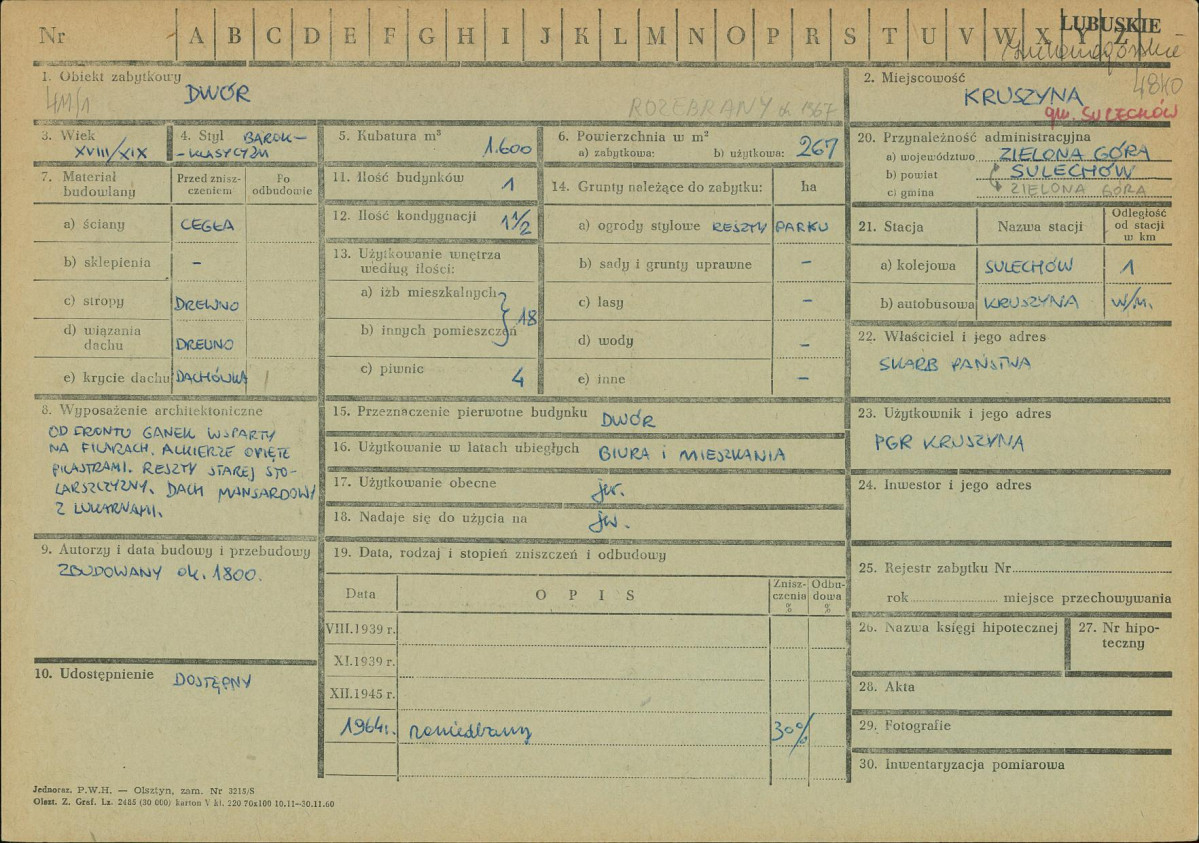 Nr A B C D E F G H I J K L M N O P R S T U V W X Y Z
LUBUSKIE
Zielonogórskie
4840
1. Obiekt zabytkowy
DWÓR
ROZEBRANY ok. 1967
2. Miejscowość
KRUSZYNA
gm. SULECHÓW
3. Wiek
XVIII/XIX
4. Styl BAROK-
-KLASYCYZM
5. Kubatura m³
1.600
6. Powierzchnia w m²
a) zabytkowa: b) użytkowa: 267
7. Materiał budowlany
Przed zniszczeniem
Po odbudowie
a) ściany CEGŁA
b) sklepienia –
c) stropy DREWNO
d) wiązania dachu DREWNO
e) krycie dachu DACHÓWKA
8. Wyposażenie architektoniczne
OD FRONTU GANEK WSPARTY
NA FILARACH. ALKIERZE OPIĘTE
PILASTRAMI. RESZTY STAREJ STO-
LARSZCZYZNY. DACH MANSARDOWY
Z LUKARNAMI.
9. Autorzy i data budowy i przebudowy
ZBUDOWANY OK. 1800.
10. Udostępnienie DOSTĘPNY
11. Ilość budynków 1
12. Ilość kondygnacji 1 1/2
13. Użytkowanie wnętrza
według ilości:
a) izb mieszkalnych
b) innych pomieszczeń
18
c) piwnic 4
14. Grunty należące do zabytku: ha
a) ogrody stylowe RESZTY PARKU
b) sady i grunty uprawne –
c) lasy –
d) wody –
e) inne –
15. Przeznaczenie pierwotne budynku DWÓR
16. Użytkowanie w latach ubiegłych BIURA I MIESZKANIA
17. Użytkowanie obecne jw.
18. Nadaje się do użycia na jw.
19. Data, rodzaj i stopień zniszczeń i odbudowy
Data OPIS Znisz-
czenia
% Odbu-
dowa
%
VIII.1939 r.
XI.1939 r.
XII.1945 r.
1964r. zaniedbany 30%
20. Przynależność administracyjna
a) województwo ZIELONA GÓRA
b) powiat SULECHÓW
c) gmina ZIELONA GÓRA
21. Stacja Nazwa stacji Odległość
od stacji
w km
a) kolejowa SULECHÓW 1
b) autobusowa KRUSZYNA W/M.
22. Właściciel i jego adres
SKARB PAŃSTWA
23. Użytkownik i jego adres
PGR KRUSZYNA
24. Inwestor i jego adres
25. Rejestr zabytku Nr
rok miejsce przechowywania
26. Nazwa księgi hipotecznej
27. Nr hipo-
teczny
28. Akta
29. Fotografie
30. Inwentaryzacja pomiarowa
Jednoraz. P.W.H. — Olsztyn, zam. Nr 3215/S
Olszt. Z. Graf. Lz. 2485 (30 000) karton V kl. 220 70x100 10.11—30.11.60